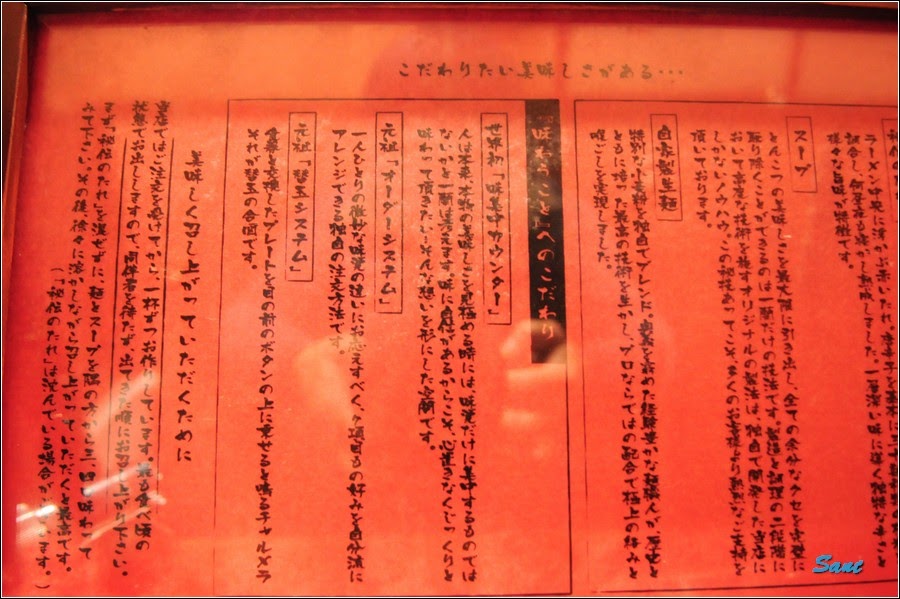 こだわりたい美味しさがある…
ラーメン中央に浮かぶ赤いたれ。唐辛子を基本に
調合し、何昼夜も寝かし熟成しました。一蘭
スープ
とんこつの美味しさを最大限に引き出し、全ての余分なクセを完璧に
取り除くことができるのは一蘭だけの技法です。
において高度な技術を要すオリジナルの製法は、独自で開発した当店に
しかないノウハウ。この秘技あってこそ、多くのお客様より熱烈なご支持を
頂いております。
自家製生麺
特別な小麦粉を独自でブレンド。
ともに培った最高の技術を生かし、プロならではの配合で極上の
唯ごしを実現しました。
味わうことへのこだわり
世界初「味集中カウンター」
人は本来、本物の美味しさを見極める時には、味覚だけに集中するものでは
ないかと一蘭は考えます。味に自信があるからこそ、心置きなくじっくりと
味わって頂きたい…そんな想いを形にした空間です。
元祖「オーダーシステム」
一人ひとりの微妙な味覚の違いにお応えすべく、7項目もの好みを自分流に
アレンジできる独自の注文方法です。
元祖「替玉システム」
食券と交換したプレートを目の前のボタンの上に乗せると鳴るチャルメラ
それが替玉の合図です。
美味しく召し上がっていただくために
当店ではご注文を受けてから、一杯ずつお作りしています。最も食べ頃の
状態でお出ししますので、同伴者を待たず、出てきた順にお召し上がり下さい。
まず「秘伝のたれ」を混ぜずに、麺とスープを隅の方から三、四口味わって
みて下さい。その後、徐々に溶かしながら召し上がっていただくと最高です。
(「秘伝のたれ」は沈んでいる場合がございます。)
Sane